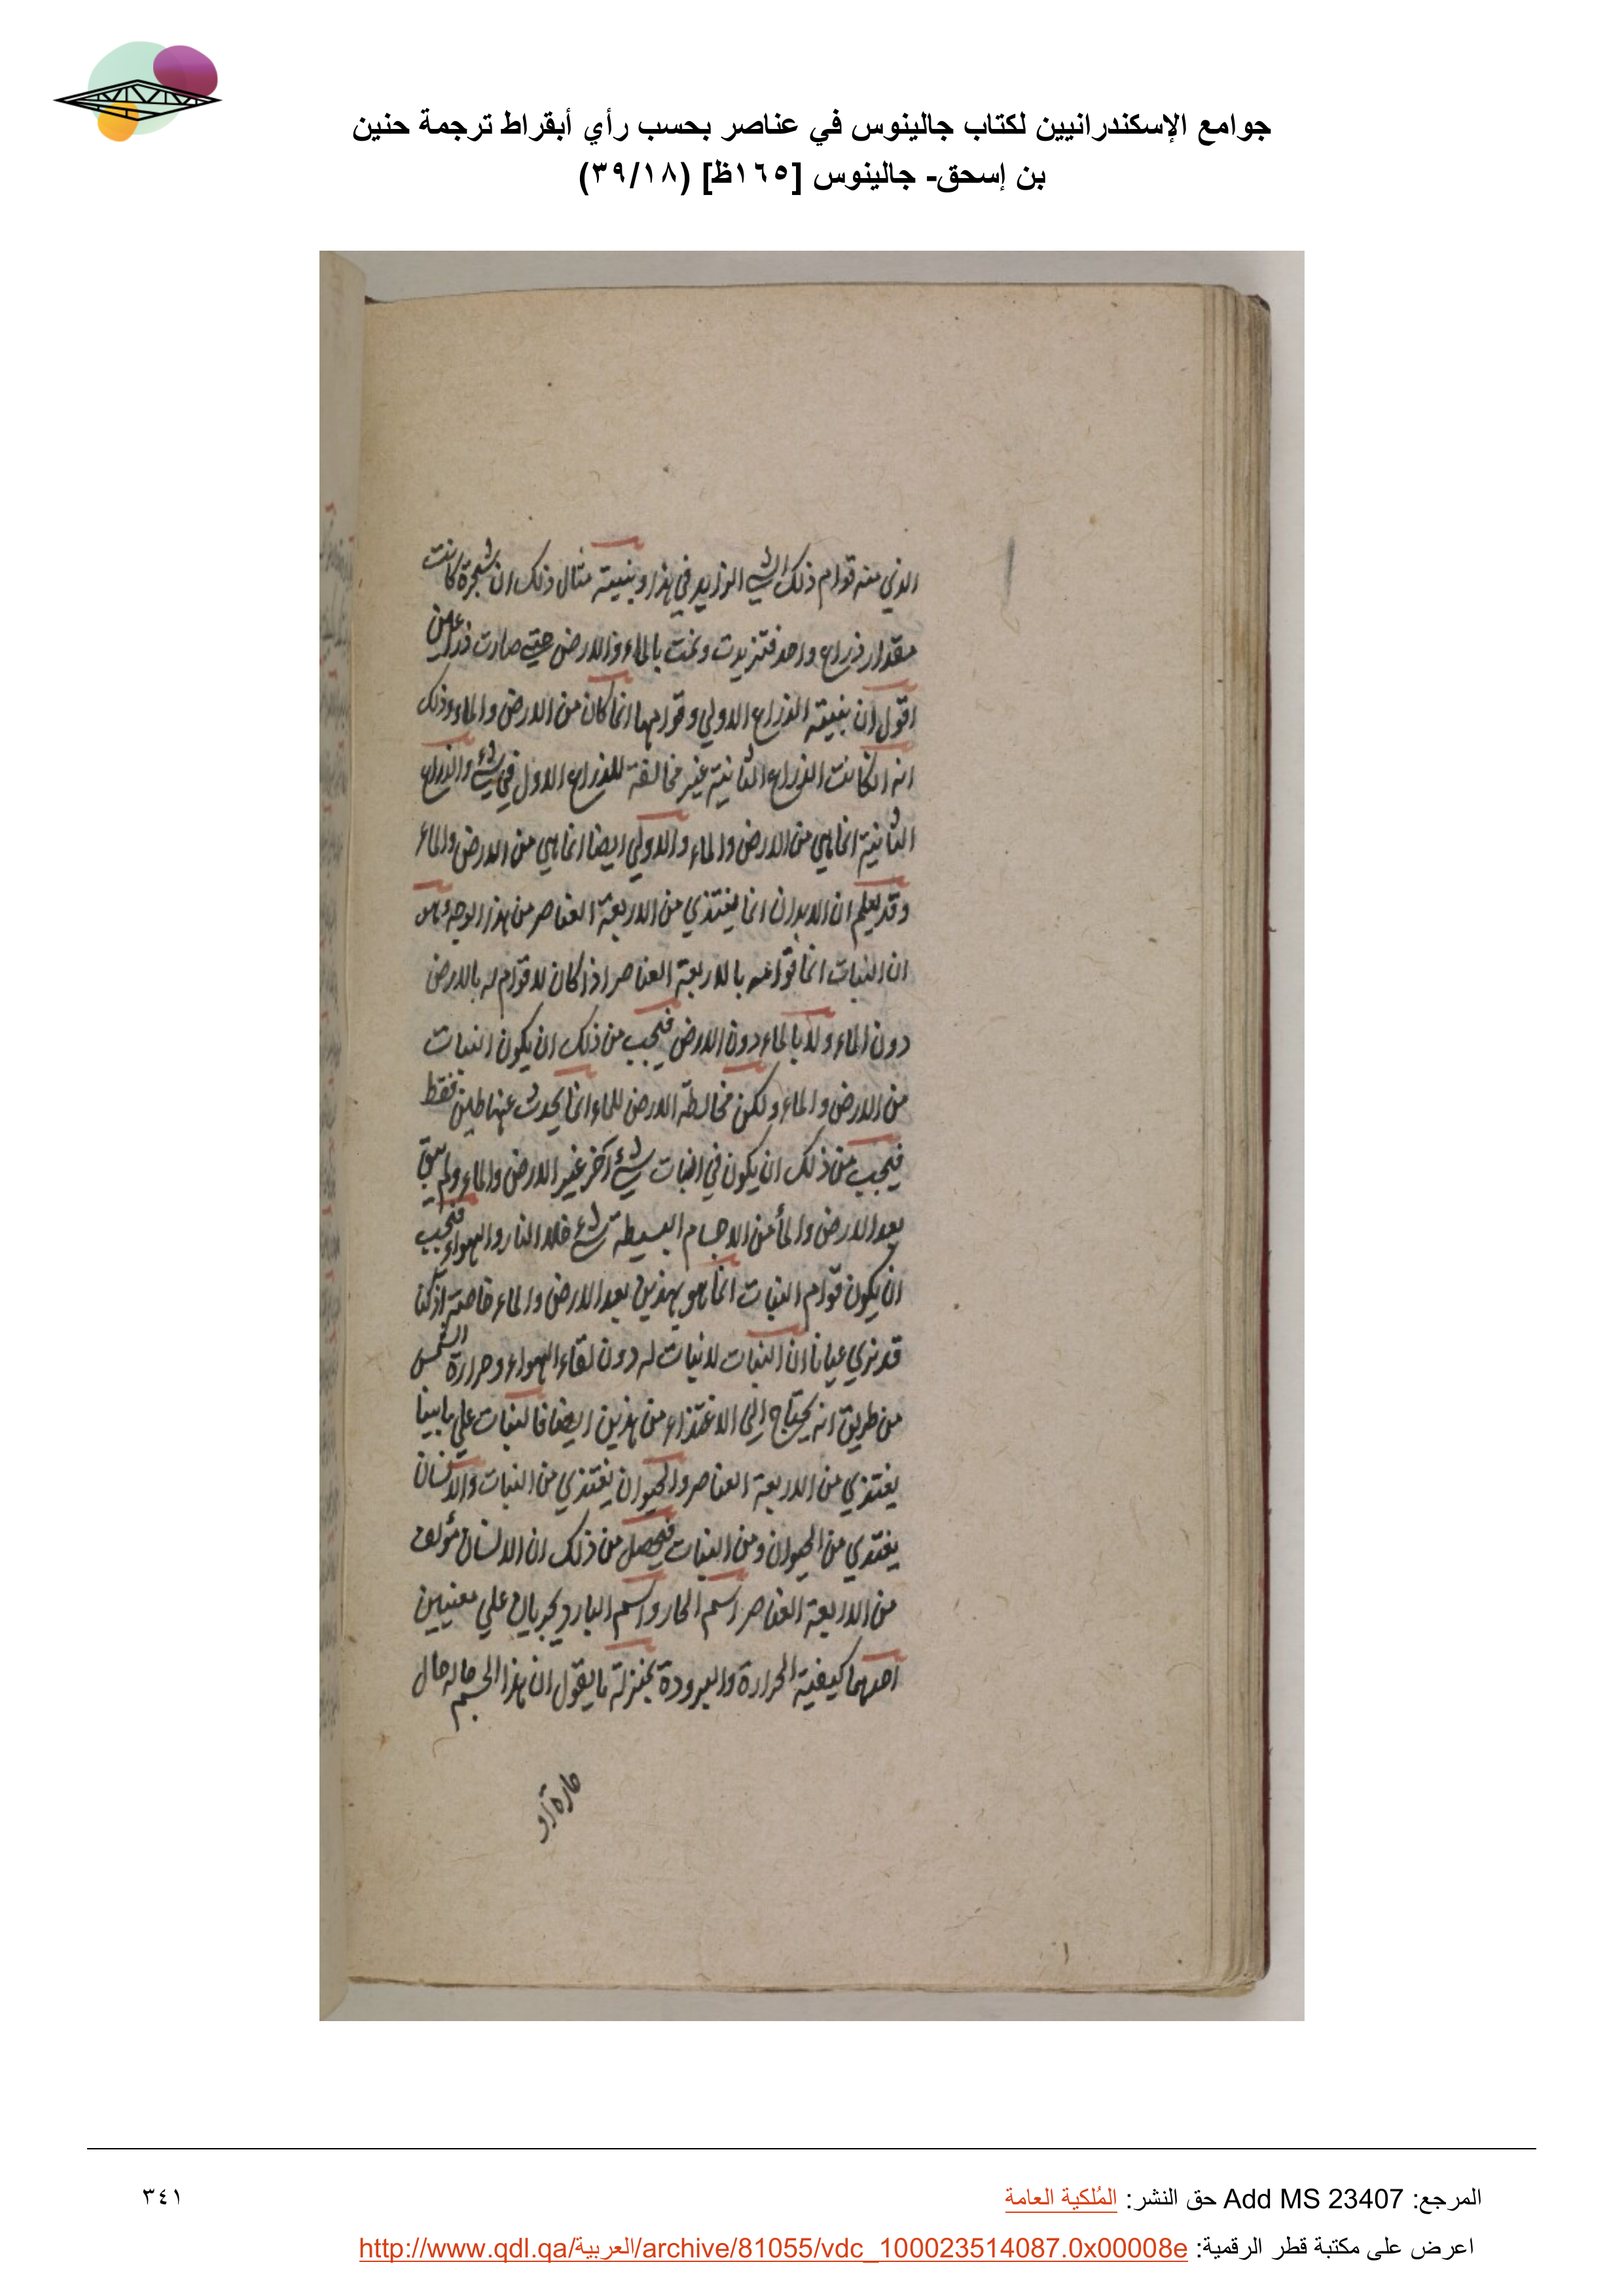 جوامع الإسكندرانيين لكتاب جالينوس في عناصر بحسب رأي أبقراط ترجمة حنين
بن إسحق- جالينوس [١٦٥ظ] (٣٩/١٨)
الذي منه قوام ذلك الشي الزايد في هذا وبنيته مثال ذلك ان شجرة كانت
مقدار ذراع واحد فتزيدت ونمت بالماء والارض حتي صارت ذراعين
اقول ان بنيته الذراع الاولي وقوامها انما كان من الارض والماء وذلك
انه ان كانت الذراع الثانية غير مخالفة للذراع الاول في شيء والذراع
الثانية انما هي من الارض والماء والاولي ايضا انما هي من الارض والماء
وقد يعلم ان الابدان انما يغتذي من الاربعة العناصر من هذا الوجه وهو
ان النبات انما قوامه بالاربعة العناصر اذا كان لا قوام له بالارض
دون الماء ولا بالماء دون الارض فيجب من ذلك ان يكون النبات
من الارض والماء ولكن مخالطة الارض للماء انما يحدث عنها طين فقط
فيجب من ذلك ان يكون في النبات شيء آخر غير الارض والماء ولم يبق
بعد الارض والمأ من الاجسام البسيطة شيء خلا النار والهواء فيجب
ان يكون قوام النبات انما هو بهذين بعد الارض والماء خاصة اذ كنا
قد نري عيانا ان النبات لا نبات له دون لقاء الهواء وحرارة الشمس
من طريق انه يحتاج الي الاغتذاء من هذين ايضا فالنبات علي ما بينا
يغتذي من الاربعة العناصر والحيوان يغتذي من النبات والانسان
يغتدي من الحيوان ومن النبات فيحصل من ذلك ان الانسان مؤلف
من الاربعة العناصر اسم الحار واسم البارد يجريان علي معنيين
احدهما كيفية الحرارة والبرودة بمنزلة ما يقول ان هذا الجسم حاله حال
حارة او
المرجع: Add MS 23407 حق النشر: المُلكية العامة
٣٤١
اعرض على مكتبة قطر الرقمية: http://www.qdl.qa/العربية/archive/81055/vdc_100023514087.0x00008e